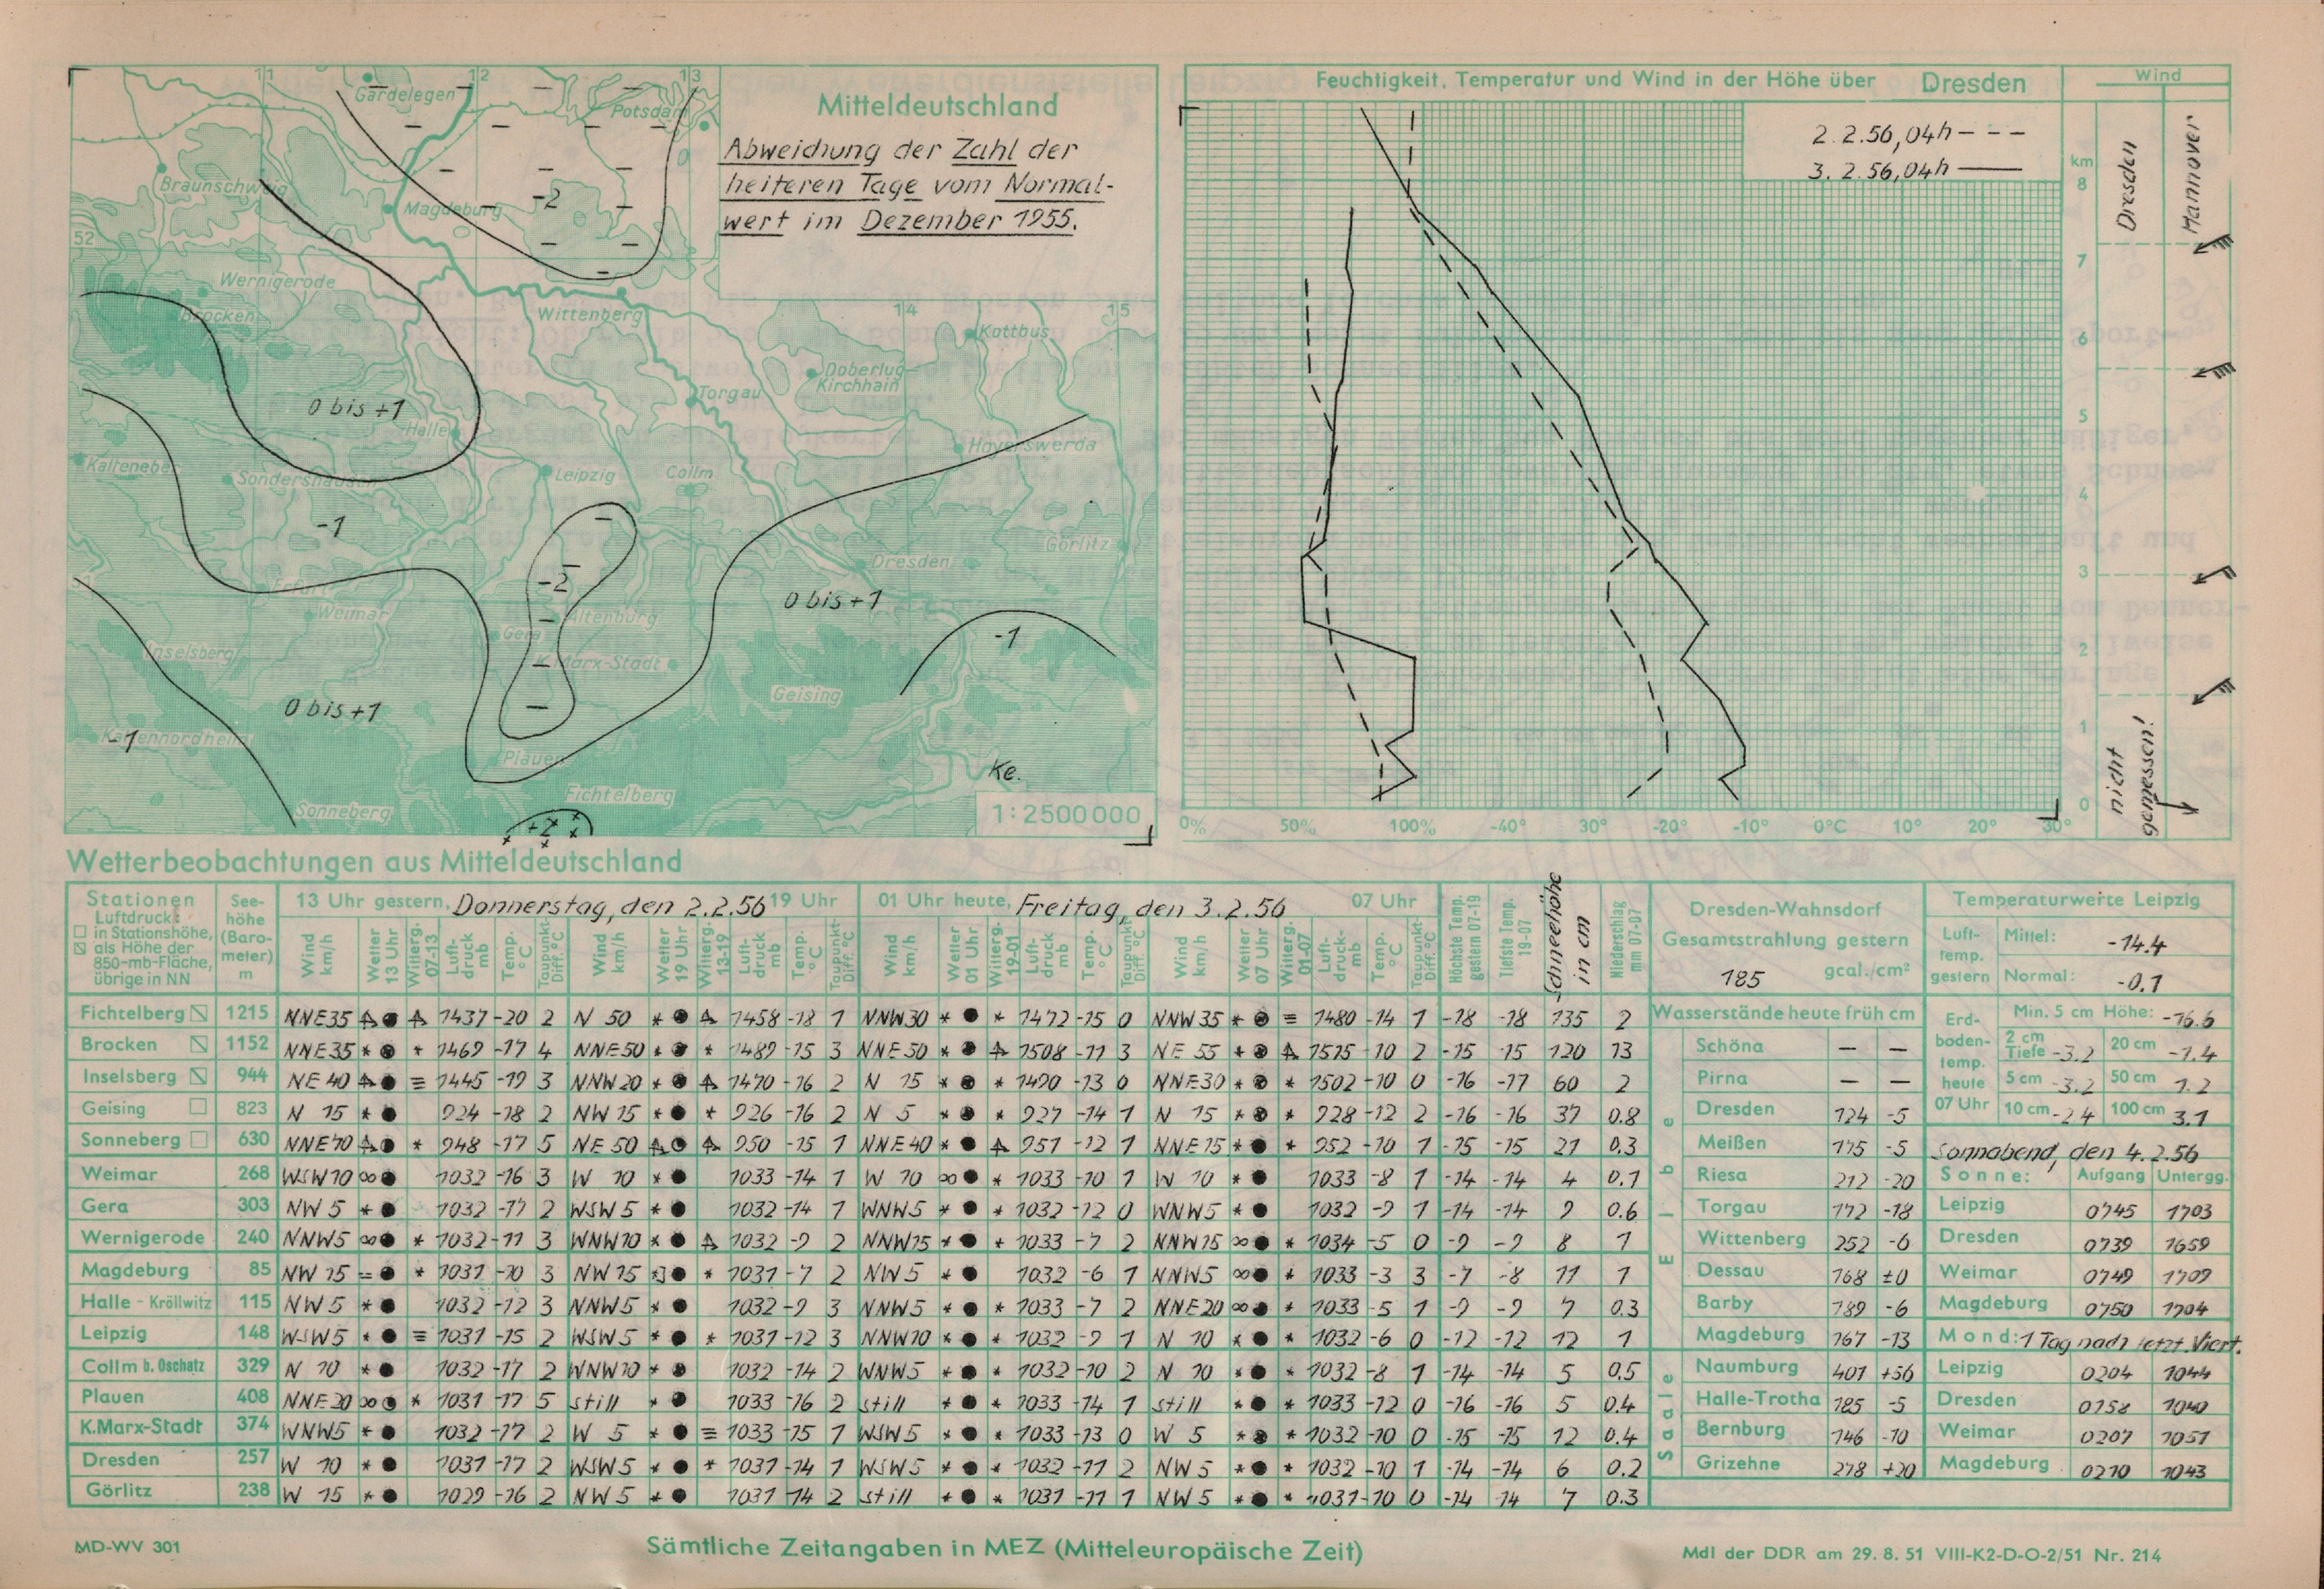 11 12 13
Gardelegen
Potsdam
Braunschweig
Magdeburg
-2
52
Wernigerode
Brocken
Wittenberg
14 15
Kottbus
Doberlug-
Kirchhain
Torgau
0 bis +1
Halle
Hoyerswerda
Sondershausen
Leipzig
Collm
-1
Görlitz
Dresden
-2
Erfurt
Weimar
Altenburg
0 bis +1
Gera
-1
Inselsberg
K.Marx-Stadt
Geising
0 bis +1
Kaltennordheim
-1
Plauen
Ke.
Fichtelberg
Sonneberg
+2
1:2500000
Mitteldeutschland
Abweichung der Zahl der
heiteren Tage vom Normal-
wert im Dezember 1955.
Feuchtigkeit, Temperatur und Wind in der Höhe über Dresden
2.2.56,04h
3.2.56,04h
Wind
Dresden
Hannover
km
8
7
6
5
4
3
2
1
0
nicht
gemessen!
0% 50% 100% -40° 30° -20° -10° 0°C 10° 20° 30°
Wetterbeobachtungen aus Mitteldeutschland
Stationen
Luftdruck:
in Stationshöhe,
als Höhe der
850-mb-Fläche,
übrige in NN
See-
höhe
(Baro-
meter)
m
13 Uhr gestern, Donnerstag, den 2.2.56 19 Uhr
01 Uhr heute, Freitag, den 3.2.56 07 Uhr
Wind km/h
Wetter 13 Uhr
Witterg. 07-13
Luft-druck mb
Temp. °C
Taupunkt-Diff. °C
Wind km/h
Wetter 19 Uhr
Witterg. 13-19
Luft-druck mb
Temp. °C
Taupunkt-Diff. °C
Wind km/h
Wetter 01 Uhr
Witterg. 19-01
Luft-druck mb
Temp. °C
Taupunkt-Diff. °C
Wind km/h
Wetter 07 Uhr
Witterg. 01-07
Luft-druck-mb
Temp. °C
Taupunkt-Diff. °C
Höchste Temp. gestern 07-19
Tiefste Temp. 19-07
Schneehöhe in cm
Niederschlag mm 07-07
Fichtelberg 1215 NNE35 1437 -20 2 N 50 1458 -18 1 NNW30 1472 -15 0 NNW35 1480 -14 1 -18 -18 135 2
Brocken 1152 NNE35 1469 -17 4 NNE50 1489 -15 3 NNE50 1508 -11 3 NE 55 1515 -10 2 -15 -15 120 13
Inselsberg 944 NE 40 1445 -19 3 NNW20 1470 -16 2 N 15 1490 -13 0 NNE30 1502 -10 0 -16 -17 60 2
Geising 823 N 15 924 -18 2 NW 15 926 -16 2 N 5 927 -14 1 N 15 928 -12 2 -16 -16 37 0.8
Sonneberg 630 NNE70 948 -17 5 NE 50 950 -15 1 NNE40 951 -12 1 NNE15 952 -10 1 -15 -15 21 0.3
Weimar 268 WSW10 1032 -16 3 W 10 1033 -14 1 W 10 1033 -10 1 W 10 1033 -8 1 -14 -14 4 0.1
Gera 303 NW 5 1032 -17 2 WSW 5 1032 -14 1 WNW5 1032 -12 0 WNW5 1032 -9 1 -14 -14 9 0.6
Wernigerode 240 NNW5 1032 -11 3 WNW10 1032 -9 2 NNW15 1033 -7 2 NNW15 1034 -5 0 -9 -9 8 1
Magdeburg 85 NW 15 1031 -10 3 NW 15 1031 -7 2 NW 5 1032 -6 1 NNW5 1033 -3 3 -7 -8 11 1
Halle - Kröllwitz 115 NW 5 1032 -12 3 NNW5 1032 -9 3 NNW5 1033 -7 2 NNE20 1033 -5 1 -9 -9 7 0.3
Leipzig 148 WSW5 1031 -15 2 WSW 5 1031 -12 3 NNW10 1032 -9 1 N 10 1032 -6 0 -12 -12 12 1
Collm b. Oschatz 329 N 10 1032 -17 2 WNW10 1032 -14 2 WNW5 1032 -10 2 N 10 1032 -8 1 -14 -14 5 0.5
Plauen 408 NNE20 1031 -17 5 still 1033 -16 2 still 1033 -14 1 still 1033 -12 0 -16 -16 5 0.4
K.Marx-Stadt 374 WNW5 1032 -17 2 W 5 1033 -15 1 WSW5 1033 -13 0 W 5 1032 -10 0 -15 -15 12 0.4
Dresden 257 W 10 1031 -17 2 WSW5 1031 -14 1 WSW5 1032 -11 2 NW 5 1032 -10 1 -14 -14 6 0.2
Görlitz 238 W 15 1029 -16 2 NW 5 1031 14 2 still 1031 -11 1 NW 5 1031 -10 0 -14 14 7 0.3
Dresden-Wahnsdorf
Gesamtstrahlung gestern
185 gcal./cm²
Wasserstände heute früh cm
Elbe
Schöna — —
Pirna — —
Dresden 124 -5
Meißen 175 -5
Riesa 212 -20
Torgau 172 -18
Wittenberg 252 -6
Dessau 168 ±0
Barby 189 -6
Magdeburg 167 -13
Saale
Naumburg 401 +56
Halle-Trotha 185 -5
Bernburg 146 -10
Grizehne 278 +20
Temperaturwerte Leipzig
Luft-
temp.
gestern
Mittel: -14.4
Normal: -0.1
Erd-
boden-
temp.
heute
07 Uhr
Min. 5 cm Höhe: -16.6
2 cm Tiefe -3.2 20 cm -1.4
5 cm -3.2 50 cm 1.2
10 cm -2.4 100 cm 3.1
Sonnabend, den 4.2.56
Sonne: Aufgang Untergg.
Leipzig 0745 1703
Dresden 0739 1659
Weimar 0749 1709
Magdeburg 0750 1704
Mond: 1 Tag nach letzt. Viert.
Leipzig 0204 1044
Dresden 0158 1040
Weimar 0207 1051
Magdeburg 0210 1043
MD-WV 301
Sämtliche Zeitangaben in MEZ (Mitteleuropäische Zeit)
MdI der DDR am 29. 8. 51 VIII-K2-D-O-2/51 Nr. 214